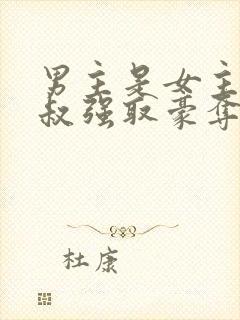 男主是女主
叔强取豪夺
杜康